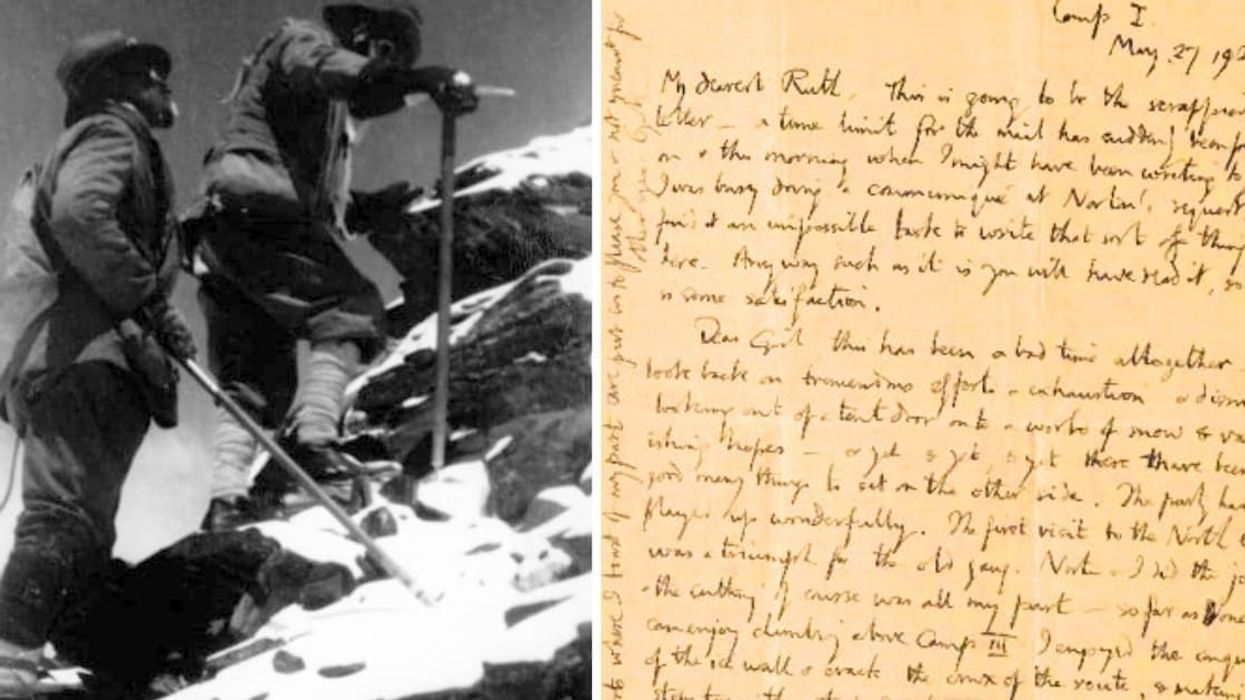 Camp I.
May 27 192
My dearest Ruth. This is going to be the scrappiest
letter — a time limit for the mail has suddenly been
on & this morning when I might have been writing to
I was busy doing a communiqué at Norton's request
find it an impossible task to write that sort of thing
here. Anyway such as it is you will have read it, so
is some satisfaction.
Dear Girl this has been a bad time altogether
look back on tremendous efforts & exhaustion & dismal
looking out of a tent door onto a world of snow & van
ishing hopes — & yet, & yet, & yet there have been
good many things to set on the other side. The party has
played up wonderfully. The first visit to the North
was a triumph for the old gang. Norton & I did the
& the cutting of course was all my part — so far as one
can enjoy climbing above Camp III I enjoyed the
of the ice wall & crack the crux of the route, & making
steps